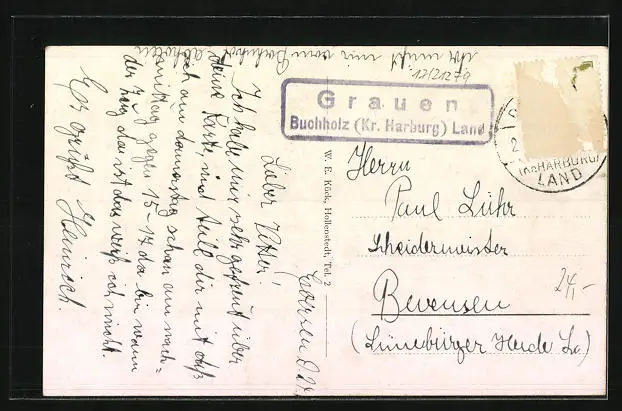 12/21279
Grauen
Buchholz (Kr. Harburg) Land
(Kr. HARBURG)
LAND
Lieber Vetter!
Ich habe mich sehr gefreut über
deine Karte, und teile dir mit daß
ich am Donnerstag schon am nach=
mittag gegen 15-17 da bin wann
der Zug da ist das weiß ich nicht.
Es grüßt Heinrich.
W. E. Kück, Hollenstedt, Tel. 2
Herrn
Paul Lühr
Schneidermeister
Bevensen
(Lüneburger Heide
24,-